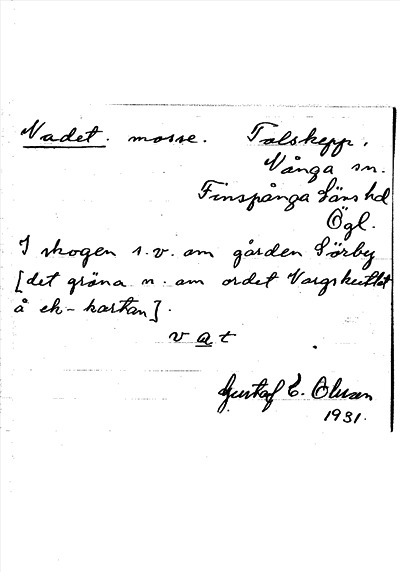 Vadet. mosse. Tolskepp.
Vånga sn.
Finspånga Läns hd
Ögl.
I skogen s.v. om gården Sörby
[det gröna n. om ordet Vargskuttet
å ek-kartan].
vat
Gustaf E. Olsson
1931.